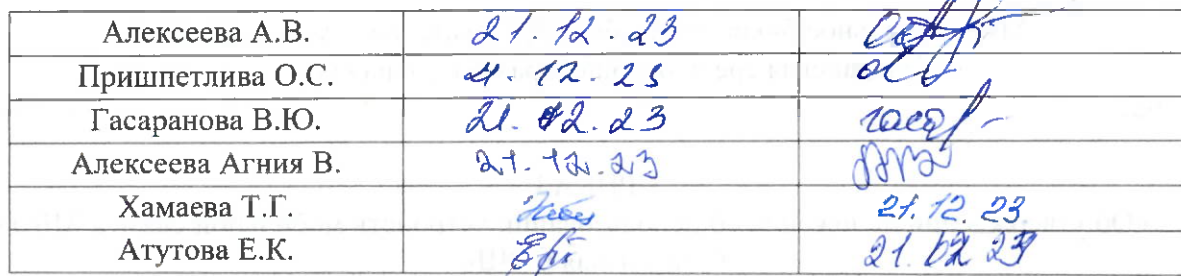 Алексеева А.В. 21.12.23
Пришпетлива О.С. 21.12.23
Гасаранова В.Ю. 21.12.23 гасар
Алексеева Агния В. 21.12.23
Хамаева Т.Г. 21.12.23
Атутова Е.К. 21.02 23